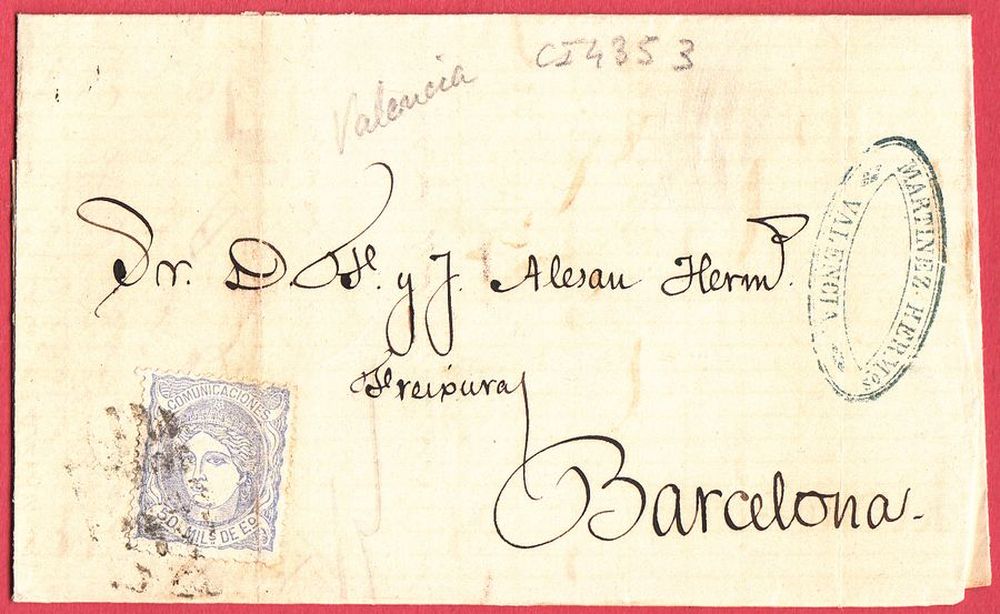 Valencia CI4353
Sr. D. F. y J. Alesan Herms.
Freixuras
Barcelona.
MARTINEZ HERMOS
VALENCIA
COMUNICACIONES
50 MILS DE EO